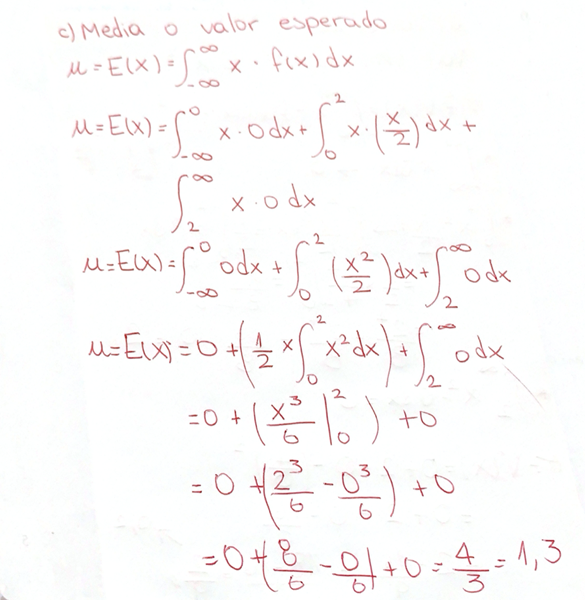 c) Media o valor esperado
μ = E(x) = ∫_{-∞}^{∞} x · f(x) dx
μ = E(x) = ∫_{-∞}^{0} x · 0 dx + ∫_{0}^{2} x · (x/2) dx +
∫_{2}^{∞} x · 0 dx
μ = E(x) = ∫_{-∞}^{0} 0 dx + ∫_{0}^{2} (x²/2) dx + ∫_{2}^{∞} 0 dx
μ = E(x) = 0 + (1/2 × ∫_{0}^{2} x² dx) + ∫_{2}^{∞} 0 dx
= 0 + (x³/6 |_{0}^{2}) + 0
= 0 + (2³/6 - 0³/6) + 0
= 0 + (8/6 - 0/6) + 0 = 4/3 = 1,3